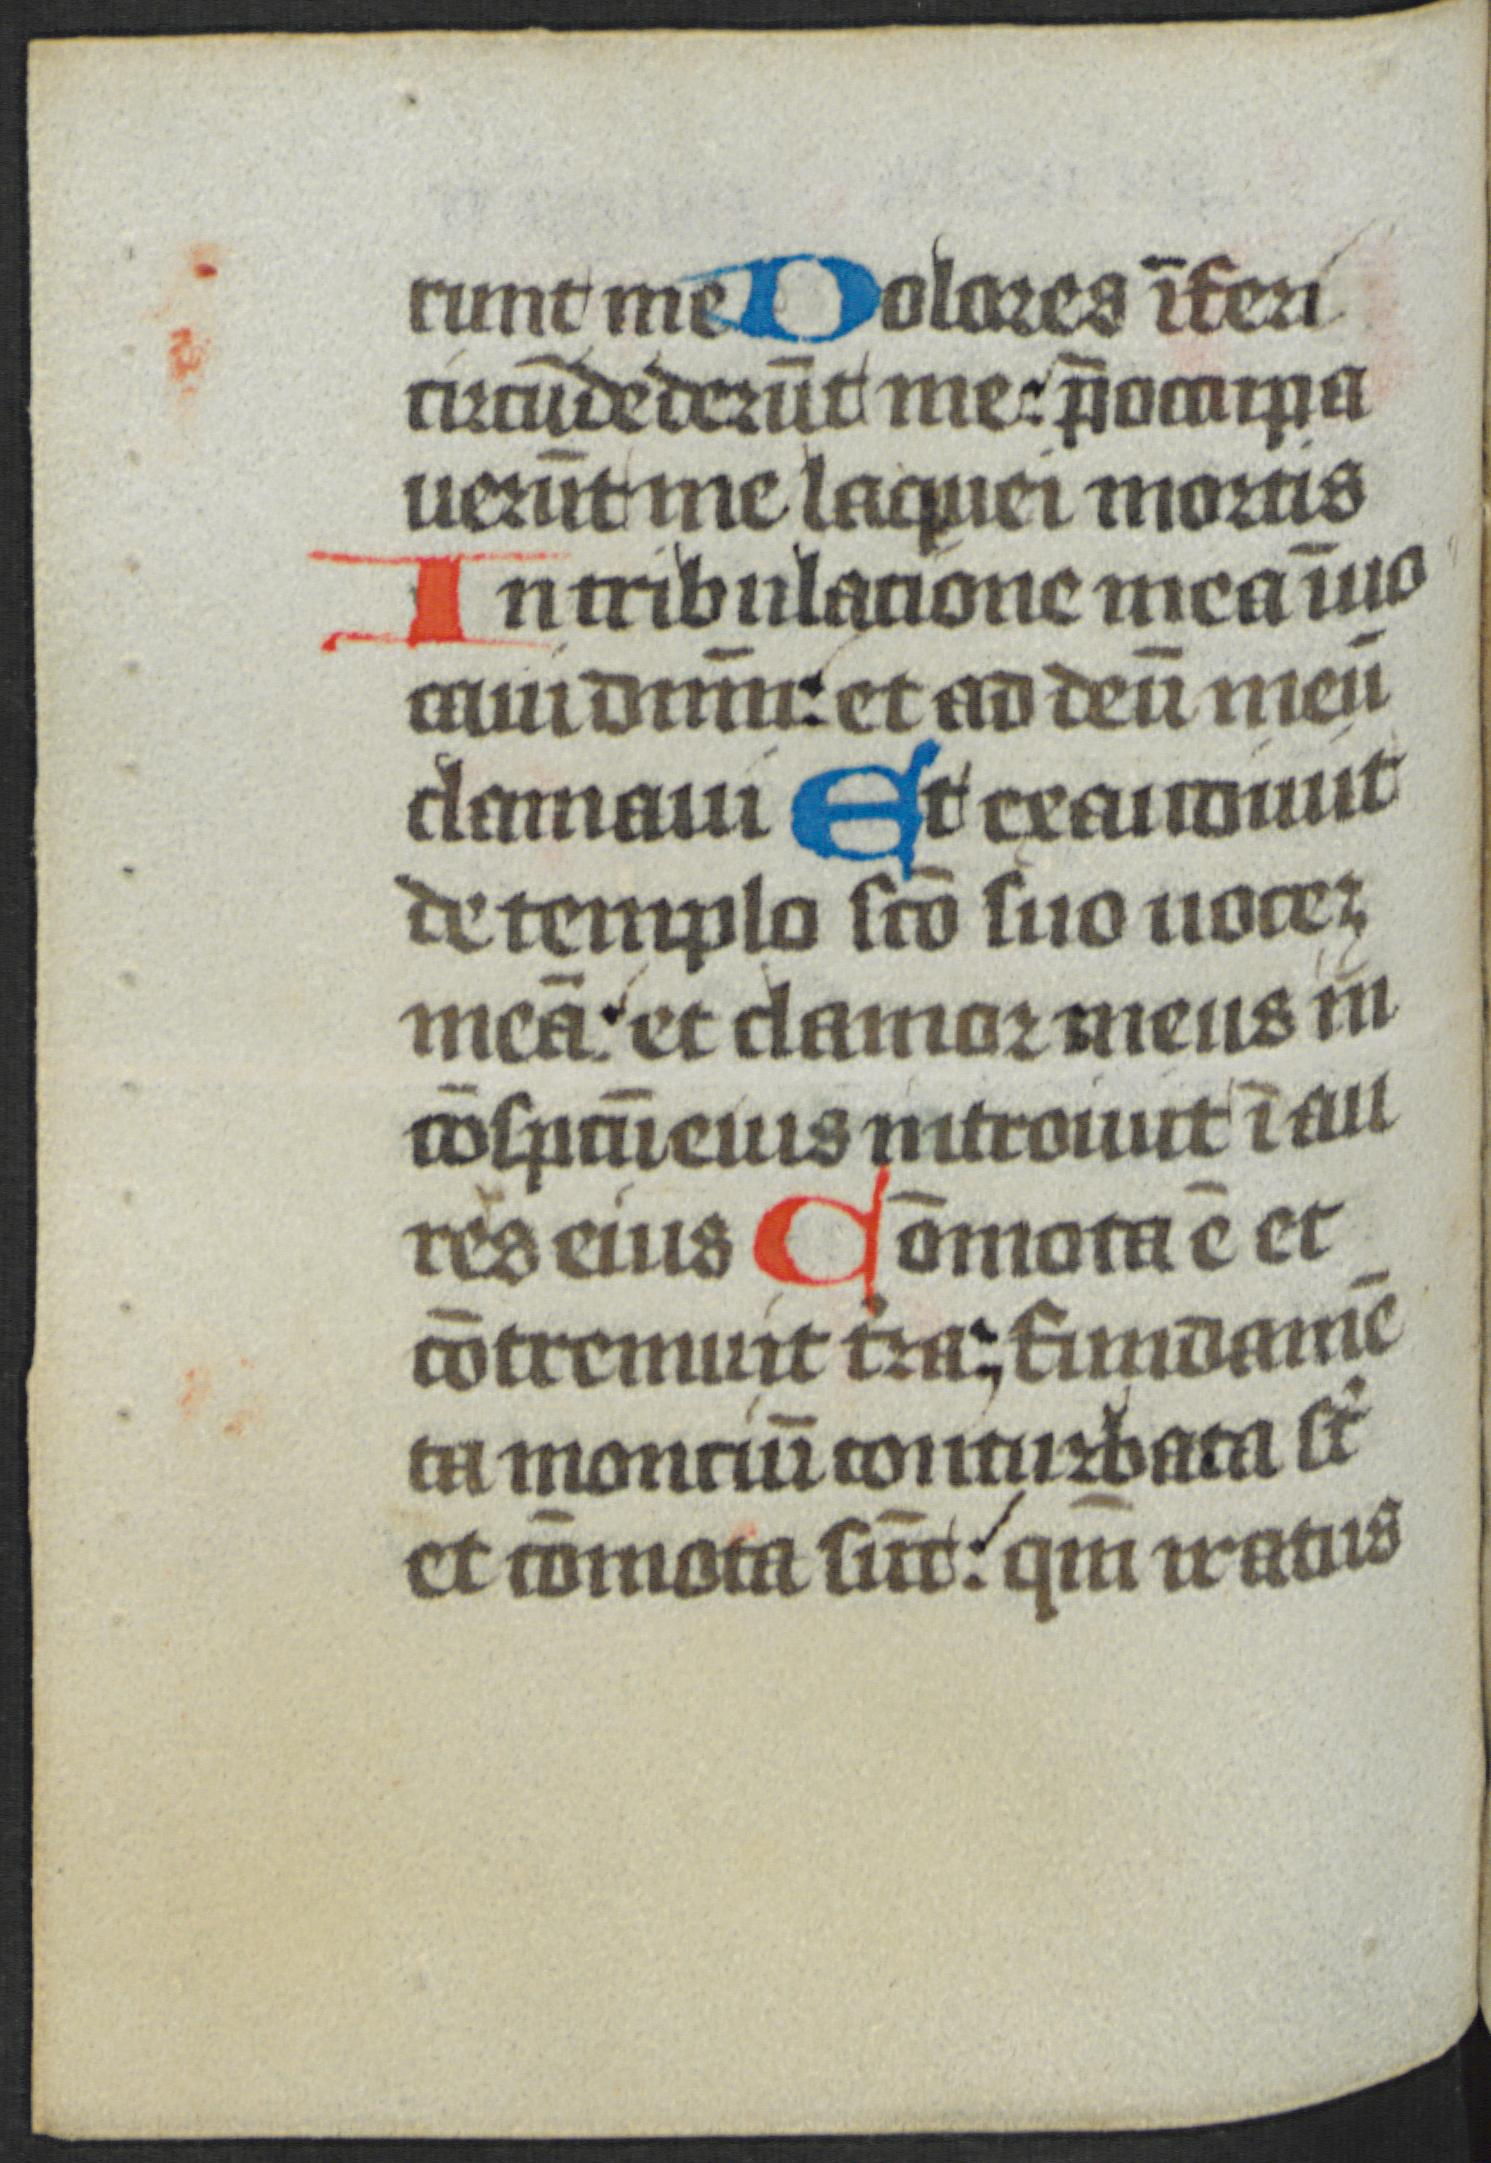 runt me Dolores īferi
circūdederūt me: p̄occupa
uerūt me laquei mortis
In tribulatione mea īuo
caui dnm̄: et ad deū meū
clamaui Et exaudiuit
de templo sc̄o suo uocez
meā: et clamor meus in̄
cōspcū eius introiuit ī au
res eius Cōmota ē et
cōtremuit t̄ra; fundamē
ta montiū conturbata st̄
et cōmota sūt: qm̄ iratus